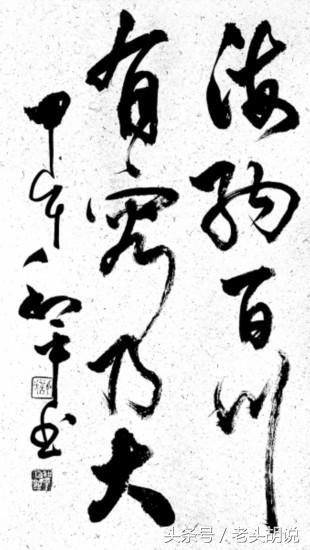 海纳百川
有容乃大
甲午和平书
头条号／老头胡说